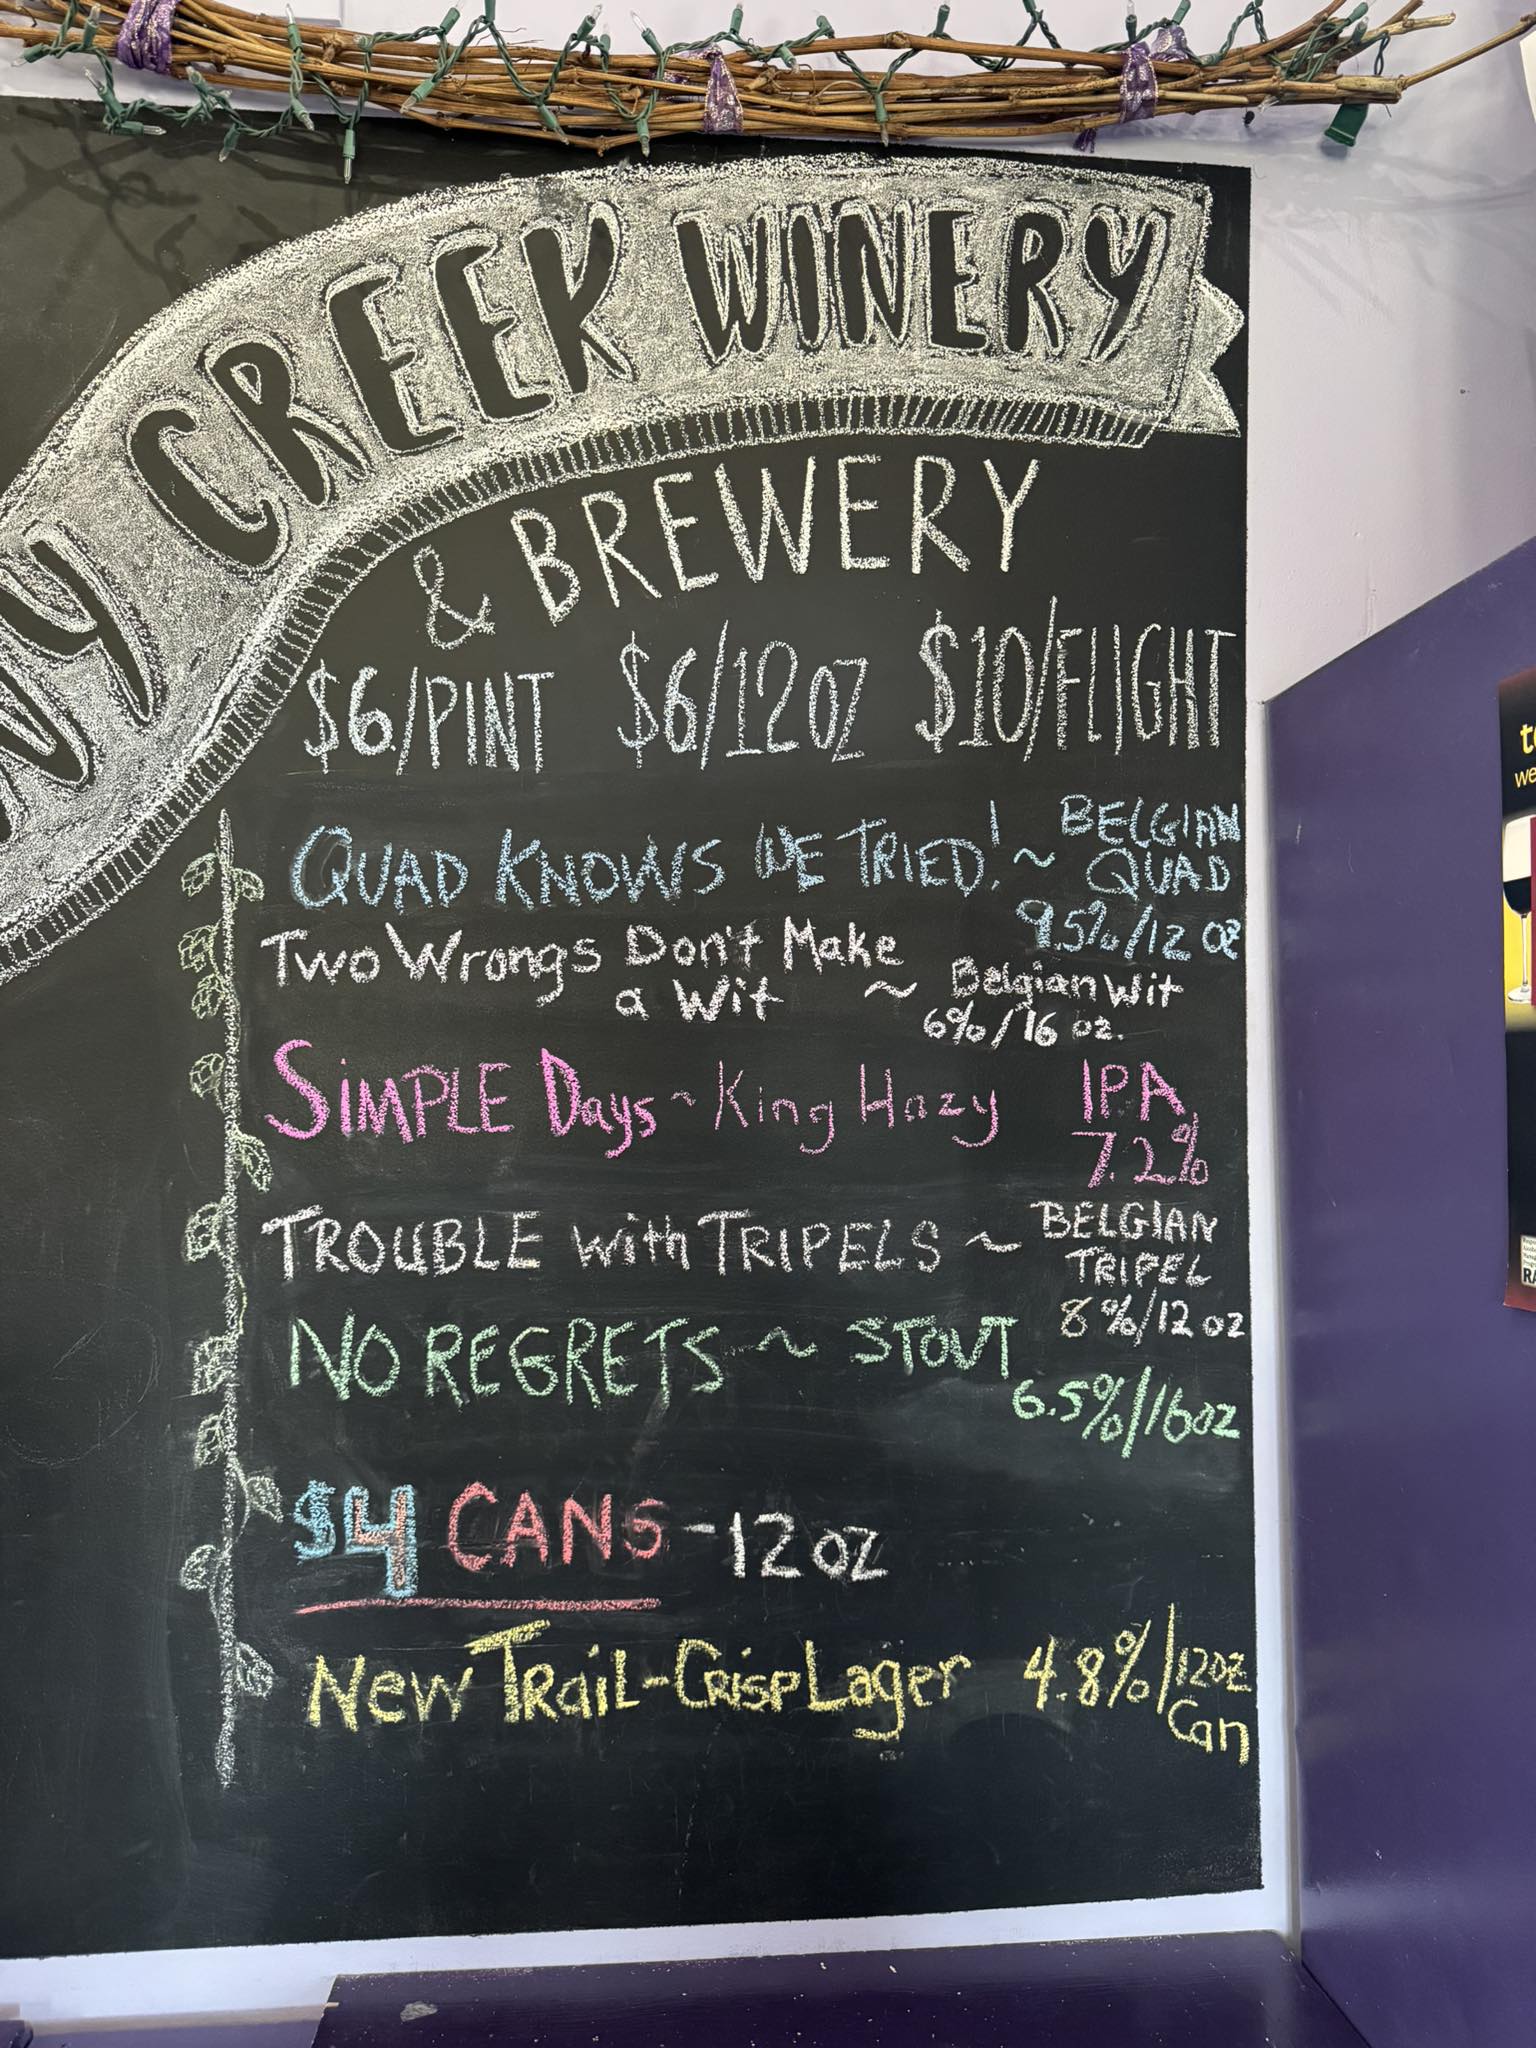 NY CREEK WINERY
& BREWERY
$6/PINT $6/12OZ $10/FLIGHT
QUAD KNOWS WE TRIED! ~ BELGIAN
QUAD
9.5%/12 OZ
Two Wrongs Don't Make
a Wit ~ Belgian Wit
6%/16 oz.
SiMPLE Days ~ King Hazy IPA
7.2%
TROUBLE with TRIPELS ~ BELGIAN
TRIPEL
8%/12 oz
NO REGRETS ~ STOUT
6.5%/16oz
$4 CANS - 12 OZ
New Trail - Crisp Lager 4.8%/12oz
Can